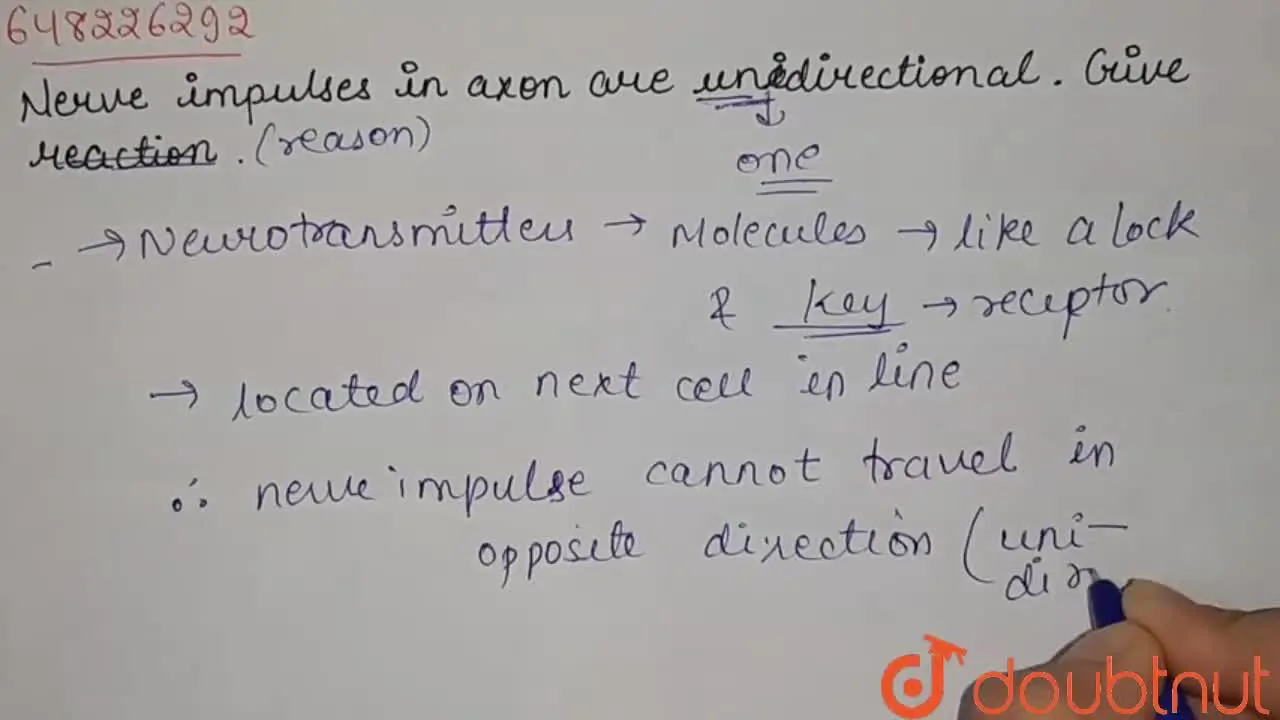 648226292
Nerve impulses in axon are unidirectional. Give
reaction. (reason)
↓
one
- → Neurotransmitters → Molecules → like a lock
& key → receptor.
→ located on next cell in line
∴ nerve impulse cannot travel in
opposite direction (uni-
dir
doubtnut